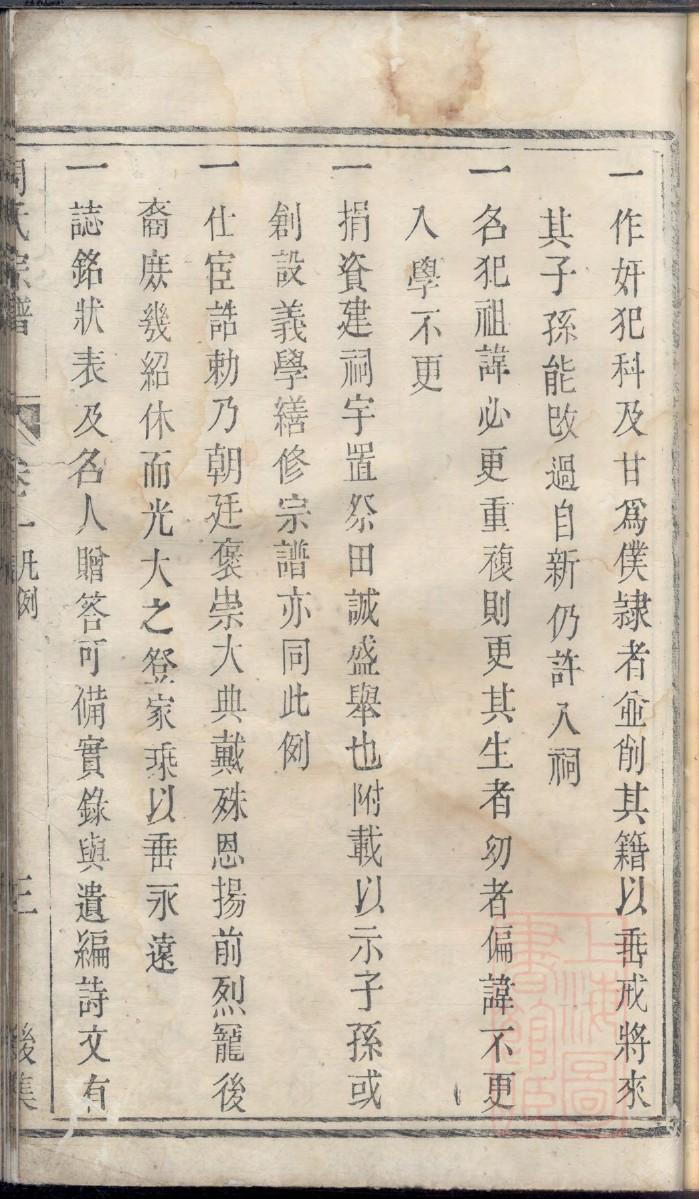 一作奸犯科及甘爲僕隸者並削其籍以垂戒將來
其子孫能改過自新仍許入祠
一名犯祖諱必更重複則更其生者幼者偏諱不更
入學不更
一捐資建祠宇置祭田誠盛舉也附載以示子孫或
創設義學繕修宗譜亦同此例
一仕宦誥勅乃朝廷褒崇大典戴殊恩揚前烈寵後
裔庶幾紹休而光大之登家乘以垂永遠
一誌銘狀表及名人贈答可備實錄與遺編詩文有
周氏宗譜 卷一 凡例 三
上海圖書館藏